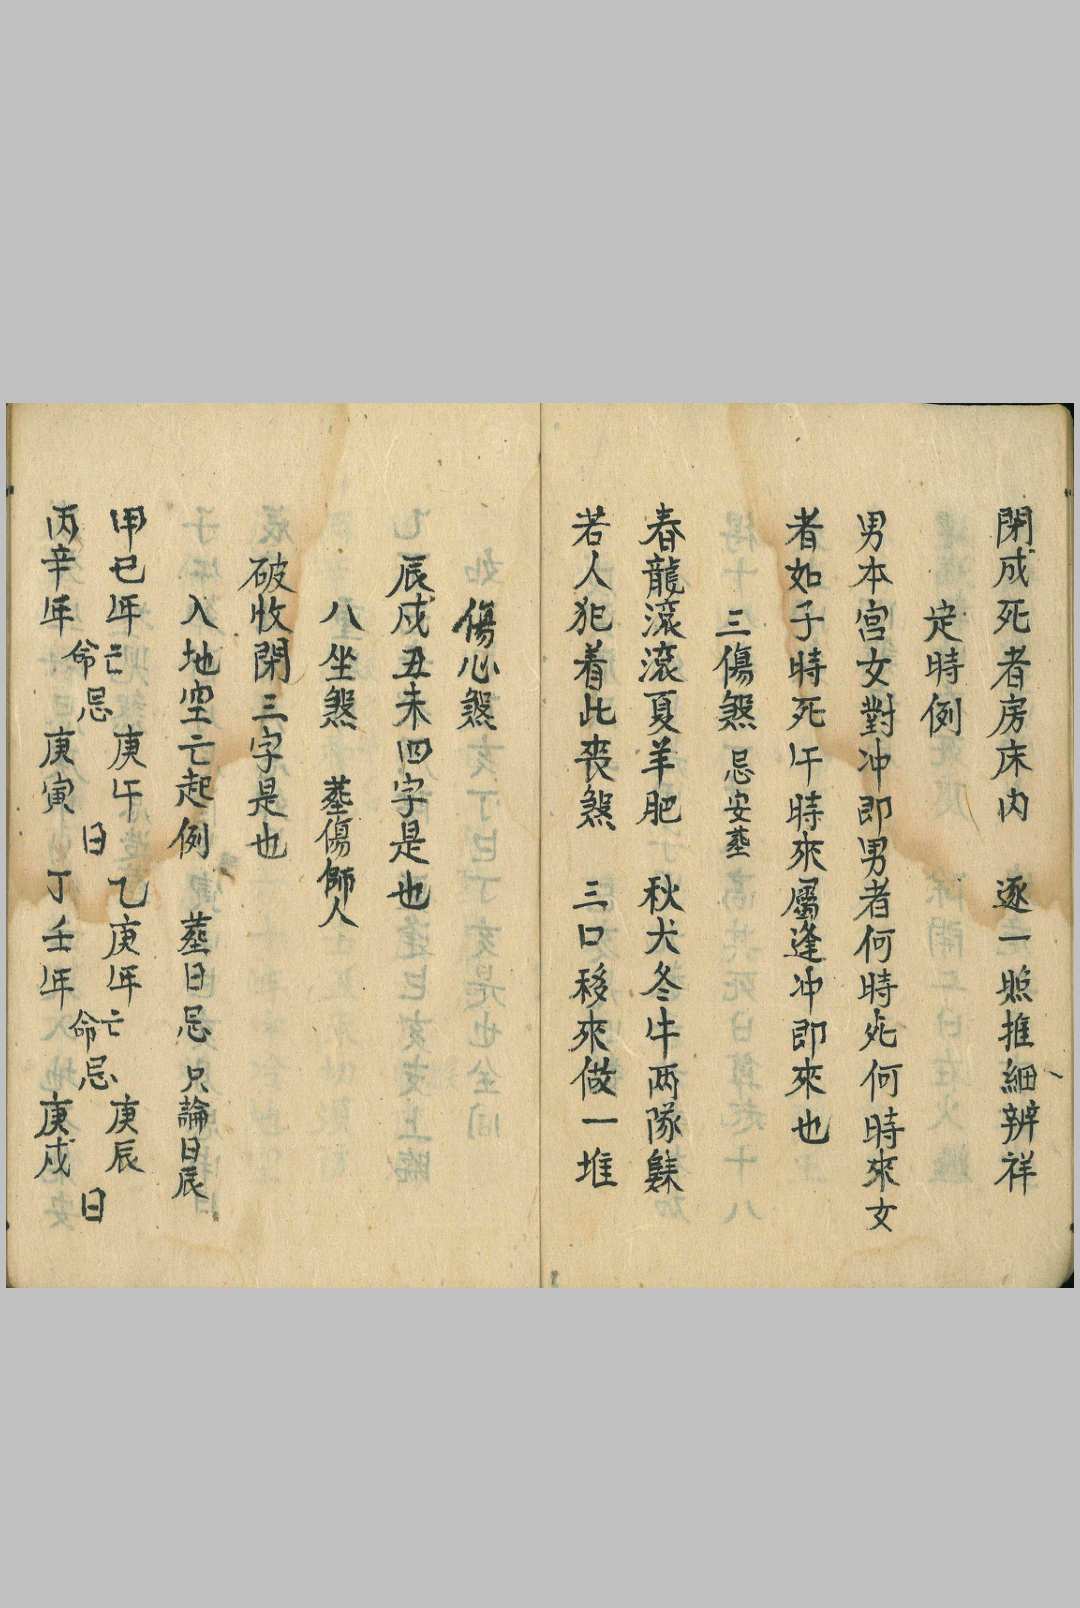 閉成死者房床內　逐一照推細辨祥
定時例
男本宮女對冲即男者何時死何時來女
者如子時死午時來屬逢冲即來也
三傷煞　忌安葬
春龍滾滾夏羊肥　秋犬冬牛两隊
若人犯着此喪煞　三口移來做一堆
傷心煞
辰戍丑未四字是也
八坐煞　葬傷師人
破收閉三字是也
入地空亡起例　葬日忌　只論日辰
甲己年亡命忌庚午日　乙庚年亡命忌庚辰日
丙辛年　庚寅　丁壬年　庚戍